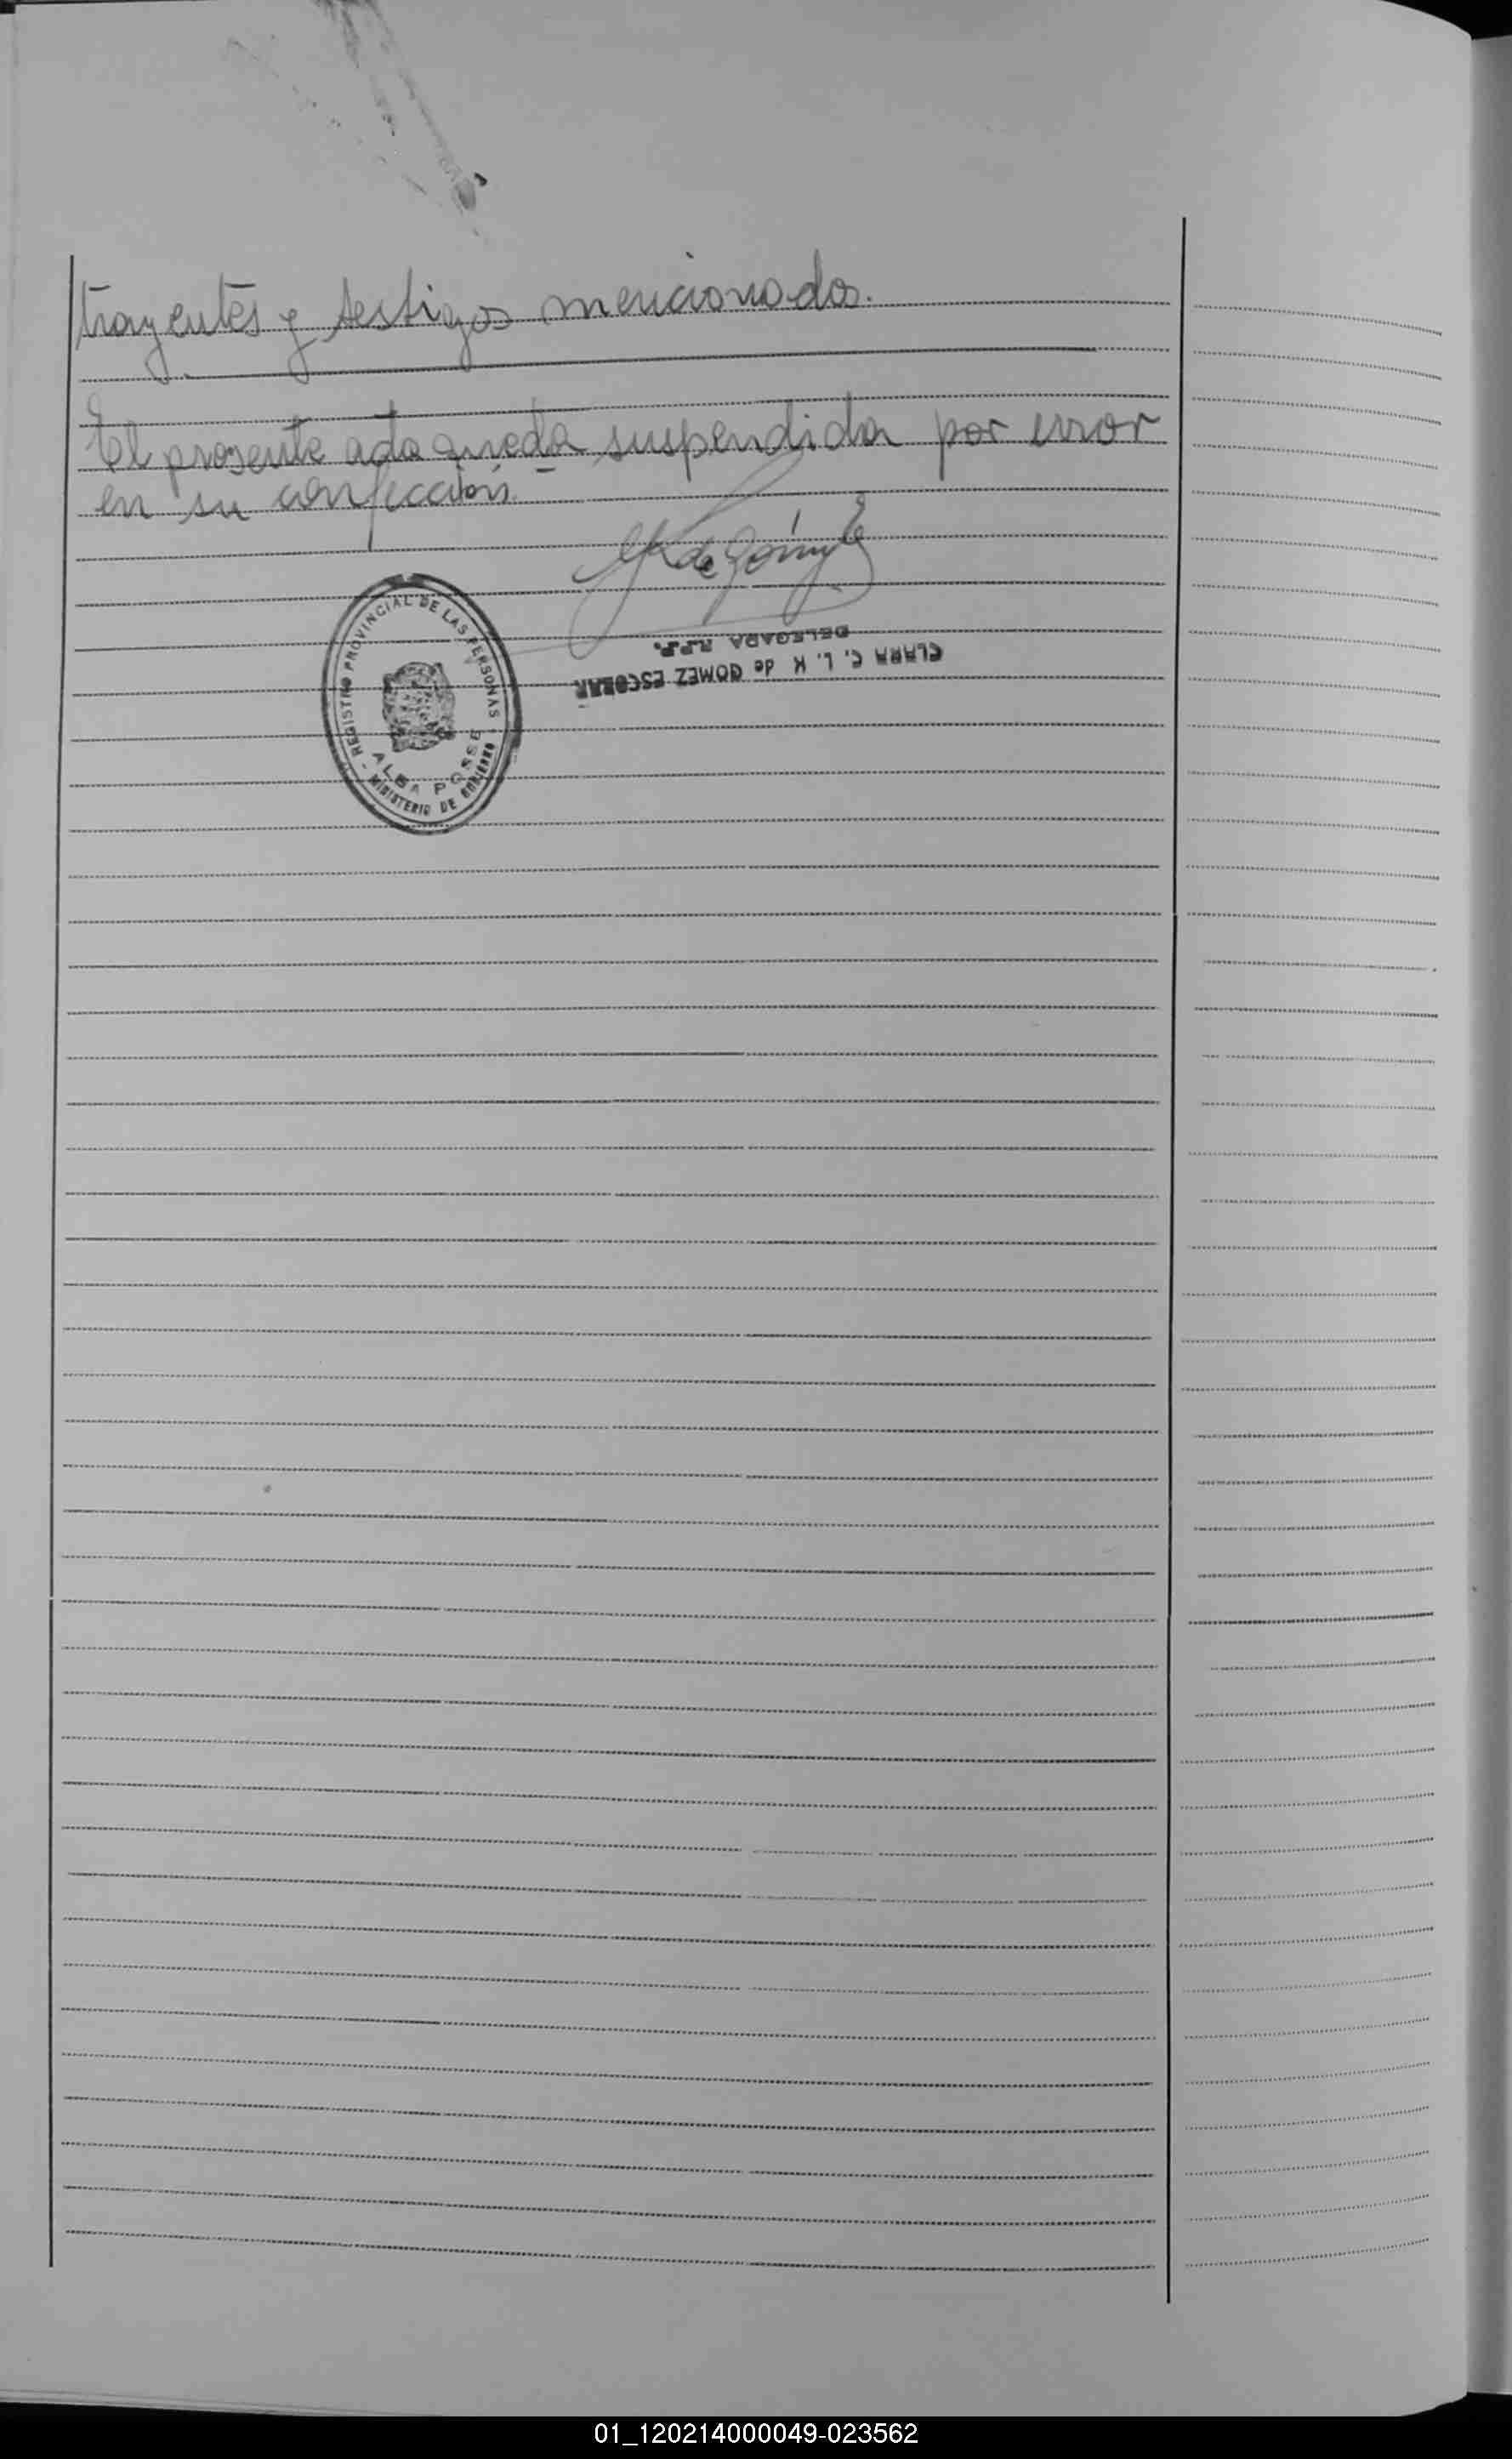 trayentes y testigos mencionados.
El presente acta queda suspendida por error
en su confección.
CLARA C. L. K de GOMEZ ESCOBAR
DELEGADA R.P.P.
- REGISTRO PROVINCIAL DE LAS PERSONAS -
ALBA POSSE
MINISTERIO DE GOBIERNO
01_120214000049-023562